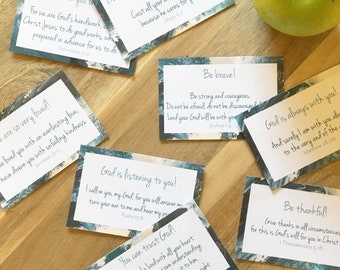 For we are God's handiwork
Christ Jesus to do good works
prepared in advance for us to do
Ephesians 2:10
Cast all your
because he cares for you
Be brave!
Be strong and courageous.
Do not be afraid; do not be discouraged
Lord your God will be with you
Joshua 1:9
are so very loved!
loved you with an everlasting love,
have drawn you with unfailing kindness
God is always with you!
And surely I am with you always
to the very end of the
God is listening to you!
I call on you, my God, for you will answer me
turn your ear to me and hear my
Psalm 17:6
Be thankful!
Give thanks in all circumstances
for this is God's will for you in Christ
1 Thessalonians 5:18
You can trust God!
Lord with all your heart